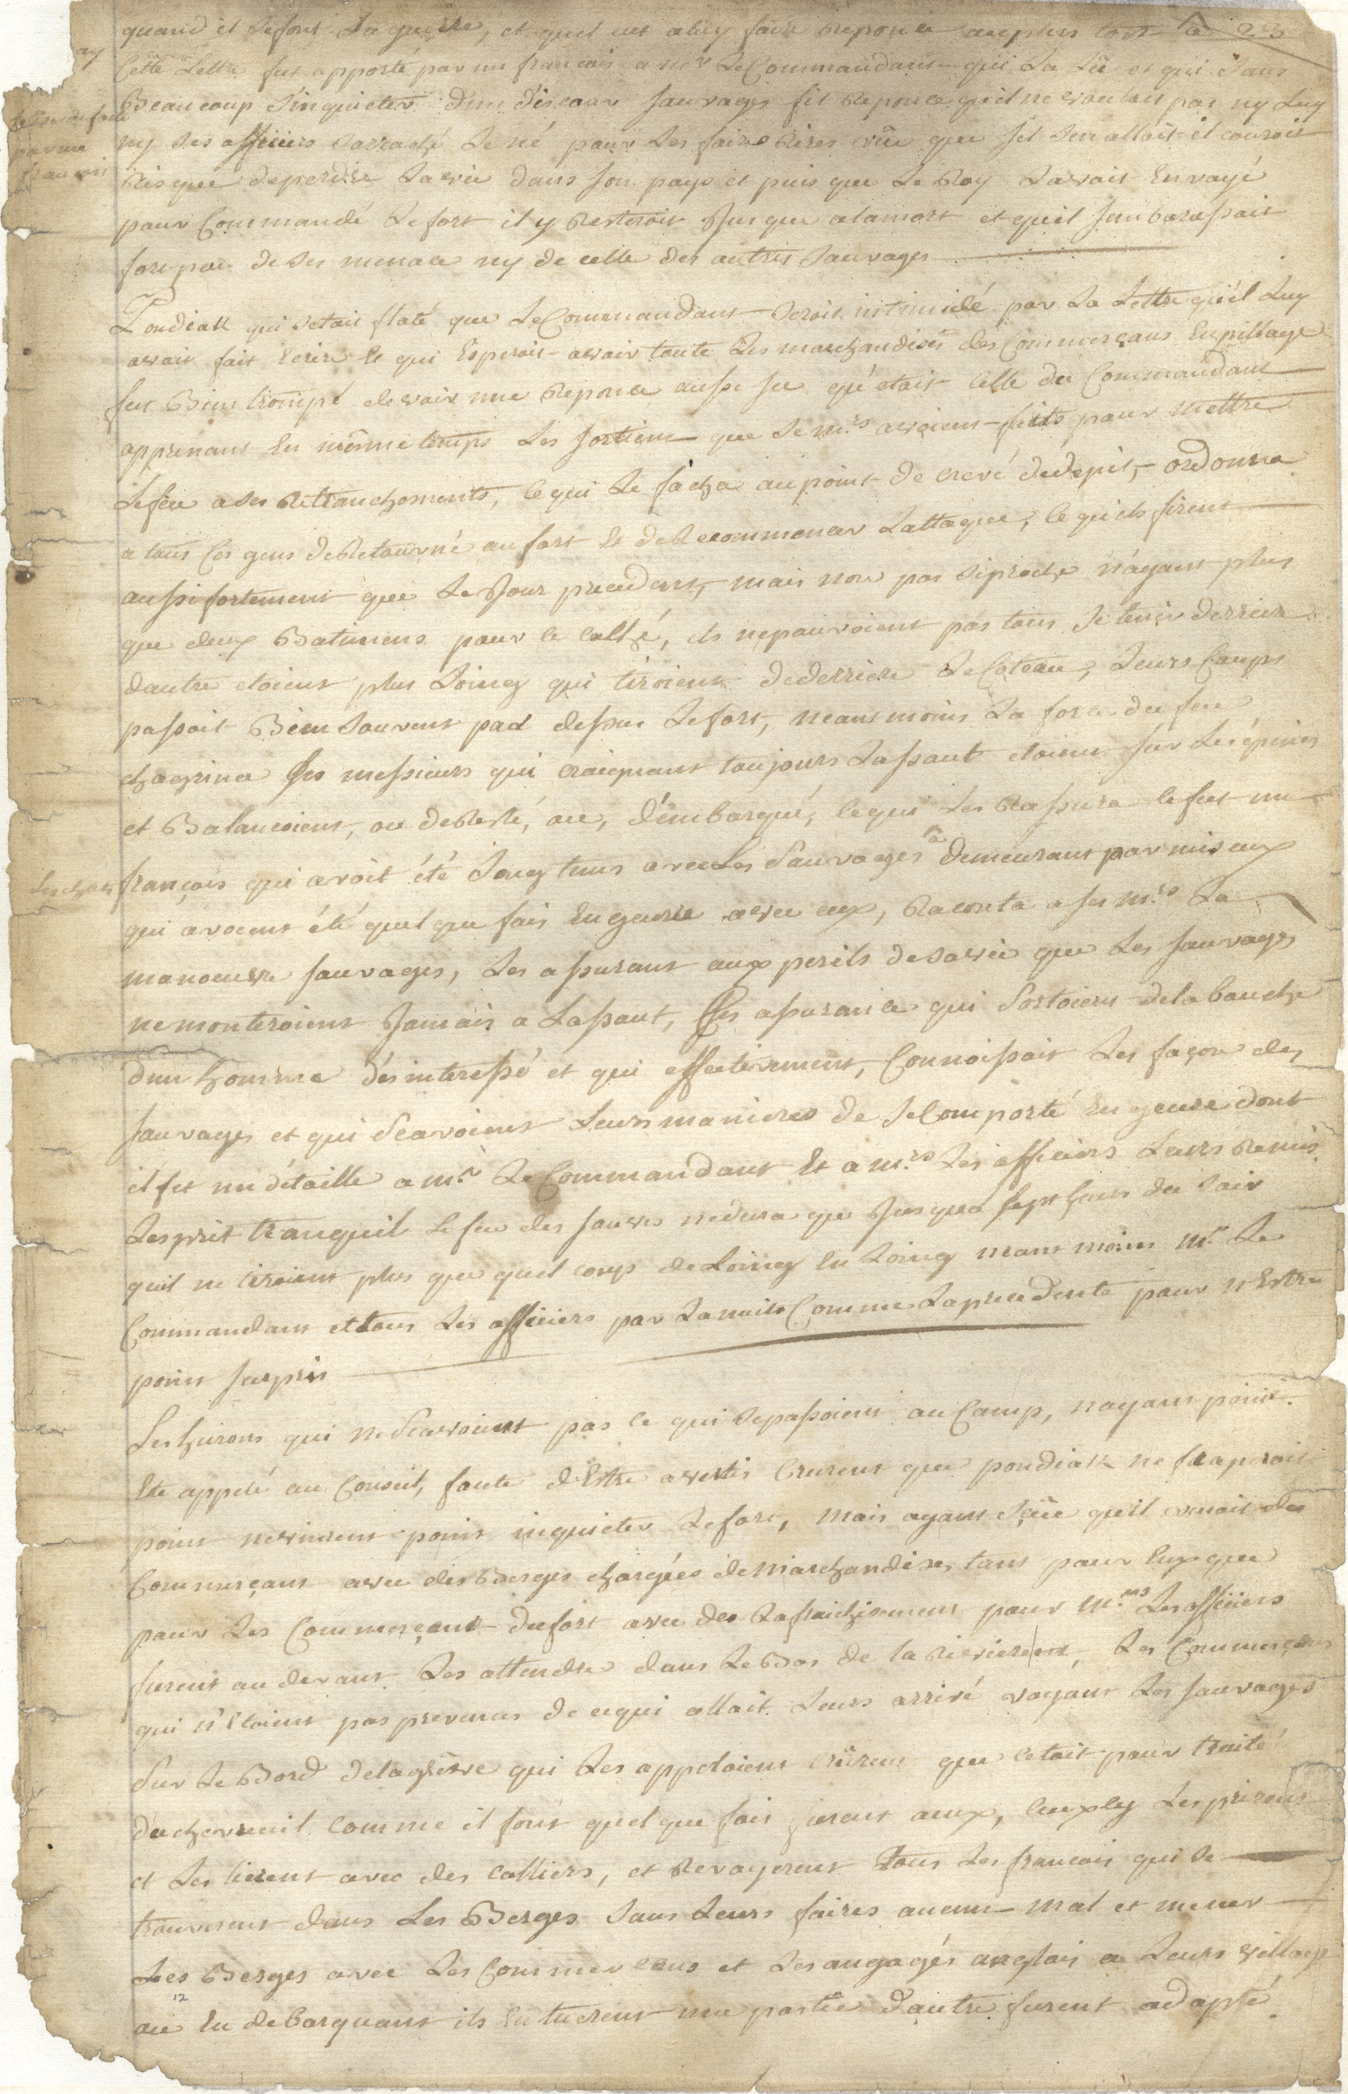 quand il se font la guerre, et quel eut a luy faire reponce au plus tost
23
Cette Lettre fut apporté par un francais a mr Le Commandant qui La Lû et qui sans
Beaucoup s'inquieter d'un discour sauvages fit Reponce qu'il ne vouloit pas ny Luy
ny ses officiers
par un
francois
Risque de perdre La vie dans son pays et puis que Le Roy L'avoit Envoyé
pour Commandé Le fort il y Resteroit Jusque a la mort et qu'il Jenbarassait
fort peu de ses menace ny de celle des autres sauvages
Pondiak qui s'etait flaté que Le Commandant seroit intimidé par La Lettre qu'il Luy
avait fait Ecrire Et qui Esperoit avoir toute Les marchandises des Commerçans En pillage
fut Bien trompé de voir une Reponce aussi qu'etait Celle du Commandant
apprenant En même temps Les sortiem que Se mrs avoient faits pour mettre
Le feu a ses Retranchements, Ce qui Le fâcha au point de crevé de depit, ordonna
a tous Ces gens de Retourné au fort Et de Recommencer L'attaque, ce qu'ils firent
aussi fortement que Le Jour precedent, mais non pas si proche n'áyant plus
que deux Batimens pour ce caché, ils ne pouvoient pas tous se tenir derriere
dautre etoient plus Loing qui tiroient de derriere Le Coteau, Leurs Coups
passoit Bien souvent par dessus Le fort, neant moins La force du feu
chagrina Ces messieurs qui craignant toujours L'assaut etoient sur Les épines
et Balançoient, ou de Resté, ou, d'émbarqué, ce qui Les Rassura ce fut un
françois qui avoit été Long tems avec Les Sauvages a demeurant parmis eux
qui avoient été quelque fois En guerre avec eux, Raconta a ses mrs La
manoeuvre sauvages, Les assurant aux perils de sa vie que Les sauvages
ne monteroient Jamais a L'assaut, Ces assurance qui sortoient de la bouche
d'un homme désinteressé et qui effectivement, Connoissait Les façon des
sauvages et qui sçavoient Leurs manieres de Se Comporté En geure dont
il fit un détaille a mr Le Commandant Et a mrs Les officiers Leurs Remis
L'esprit tranquil Le feu des sauvs ne dura que Jusqua sept heurs du soir
qu'il ne tiroient plus que quel coup de Loing En Loing neant moins mr Le
Commandant et tous Les officiers par La nuits Comme La precedente pour n'Estre
point surpris
Les hurons qui ne sçavoient pas ce qui se passoient au Camp, n'ayant point
Ete appelé au Conseil, faute d'Estre avertis Crurent que pondiak ne fraperoit
point ne vinrent point inquieter Le fort, mais ayant sçûe qu'il venait des
Commerçant avec des Berges chargées de marchandise, tant pour Eux que
pour Les Commerçant du fort avec des Rafraichisement pour mrs Les officiers
furent au devant Les attendre dans Le Bas de la Riviere, Les Commerçans
qui n'Etoient pas prevenus de ce qui allait Leurs arrivé voyant Les sauvages
Sur Le Bord de la greve qui Les appeloient crûrent que c'etait pour traité
du chevreuil Comme il font quel que fois furent aux, Ceux cy Les prirent
et Les lierent avec des colliers, et Revoyerent tous Les francais qui Se
trouverent dans Les Berges sans Leurs faires aucun mal et mener
Les Berges avec Les Commercans et Les angagés anglais a Leurs village
12
ou En debarquant ils En tuerent une partie d'autre furent adopté